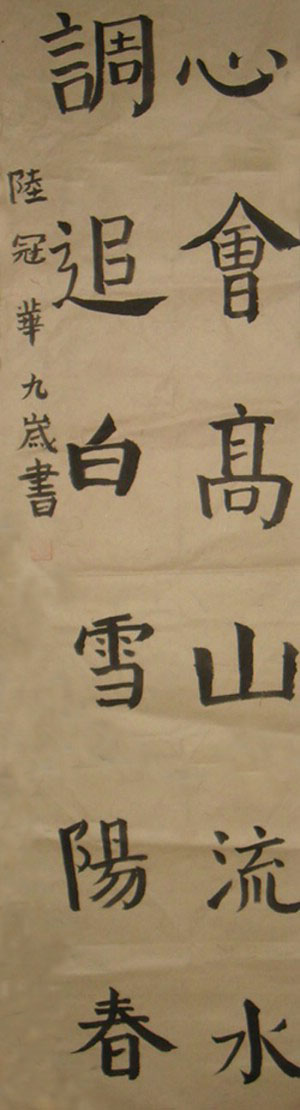 心會髙山流水
調追白雪陽春
陸冠華九歲書